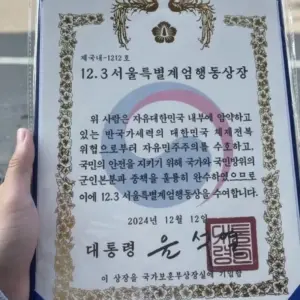 제국내-1212호
12.3서울특별계엄행동상장
위 사람은 자유대한민국 내부에 암약하고
있는 반국가세력의 대한민국 체제전복
위협으로부터 자유민주주의를 수호하고,
국민의 안전을 지키기 위해 국가와 국민방위의
군인본분과 중책을 훌륭히 완수하였으므로
이에 12.3서울특별계엄행동상을 수여합니다.
2024년 12월 12일
대통령 윤석열
이 상장을 국가보훈부상장실에 기입함